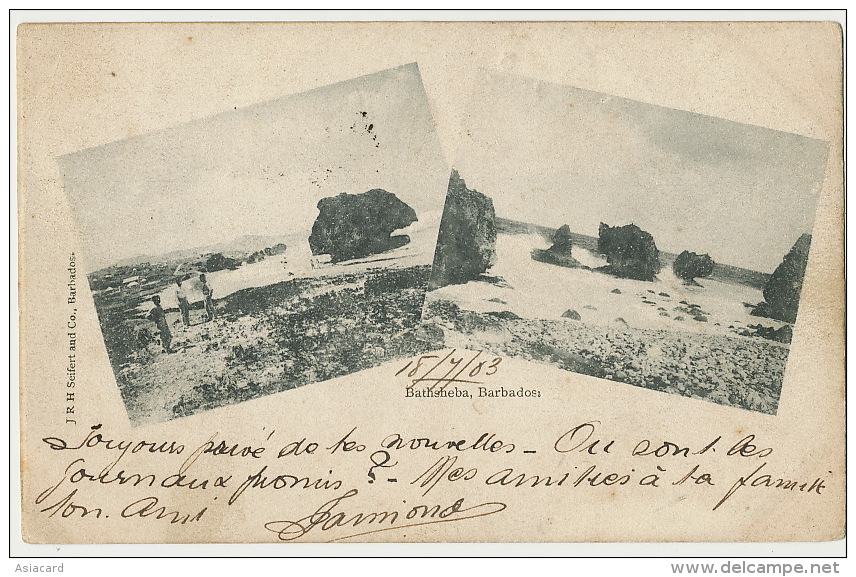 J R H Seifert and Co., Barbados.
18/7/03
Bathsheba, Barbados:
Toujours privé de tes nouvelles - Ou sont les
journaux promis ? - Mes amities à ta famille
Ton Ami
Asiacard
www.delcampe.net